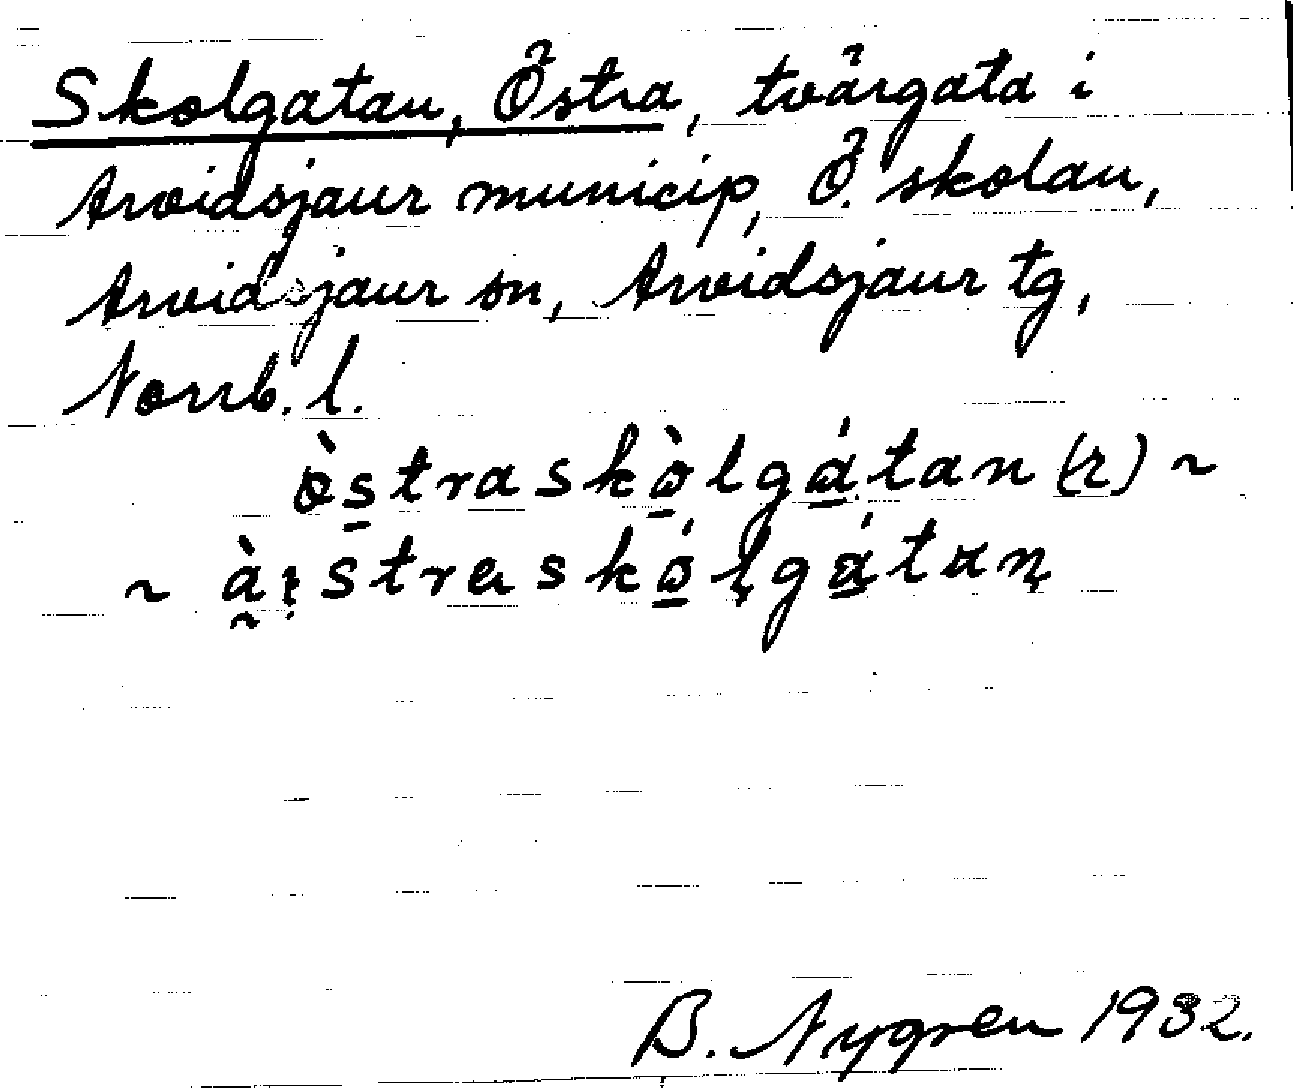 Skolgatan, Östra, tvärgata i
Arvidsjaur municip, Ö. skolan,
Arvidsjaur sn, Arvidsjaur tg,
Norrb. l.
òs̠traskò̠lgá̠tan (r) ~
~ à̰i̭streskó̠ḷgá̠tan̦
B. Nygren 1932.